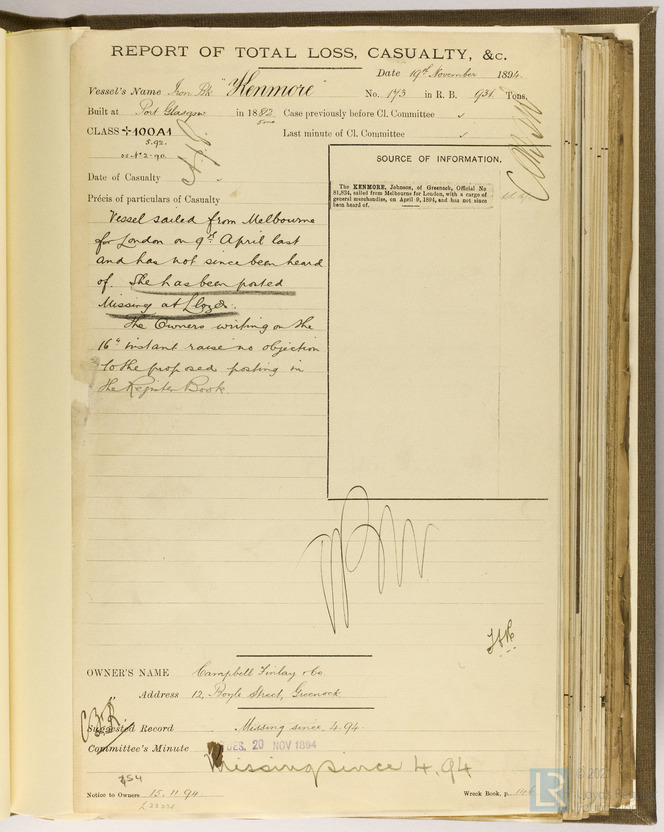 REPORT OF TOTAL LOSS, CASUALTY, &c.
Date 19th November 1894.
Vessel's Name Iron Bk "Kenmore" No. 173 in R. B. 931 Tons.
Built at Port Glasgow in 1882 Case previously before Cl. Committee
5mo
CLASS ✠100A1 Last minute of Cl. Committee
5.92.
ss No 2-90
SOURCE OF INFORMATION.
Date of Casualty
The KENMORE, Johnson, of Greenock, Official No
81,834, sailed from Melbourne for London, with a cargo of
general merchandise, on April 9, 1894, and has not since
been heard of.
Précis of particulars of Casualty
Vessel sailed from Melbourne
for London on 9th April last
and has not since been heard
of. She has been posted
Missing at Lloyds.
The Owners writing on the
16th instant raise no objection
to the proposed posting in
the Register Book.
OWNER'S NAME Campbell Finlay & Co
" Address 12, Boyle Street, Greenock
Suggested Record Missing since 4.94.
Committee's Minute TUES. 20 NOV 1894
Missing since 4.94
754
Notice to Owners 15.11.94 Wreck Book, p.
LR